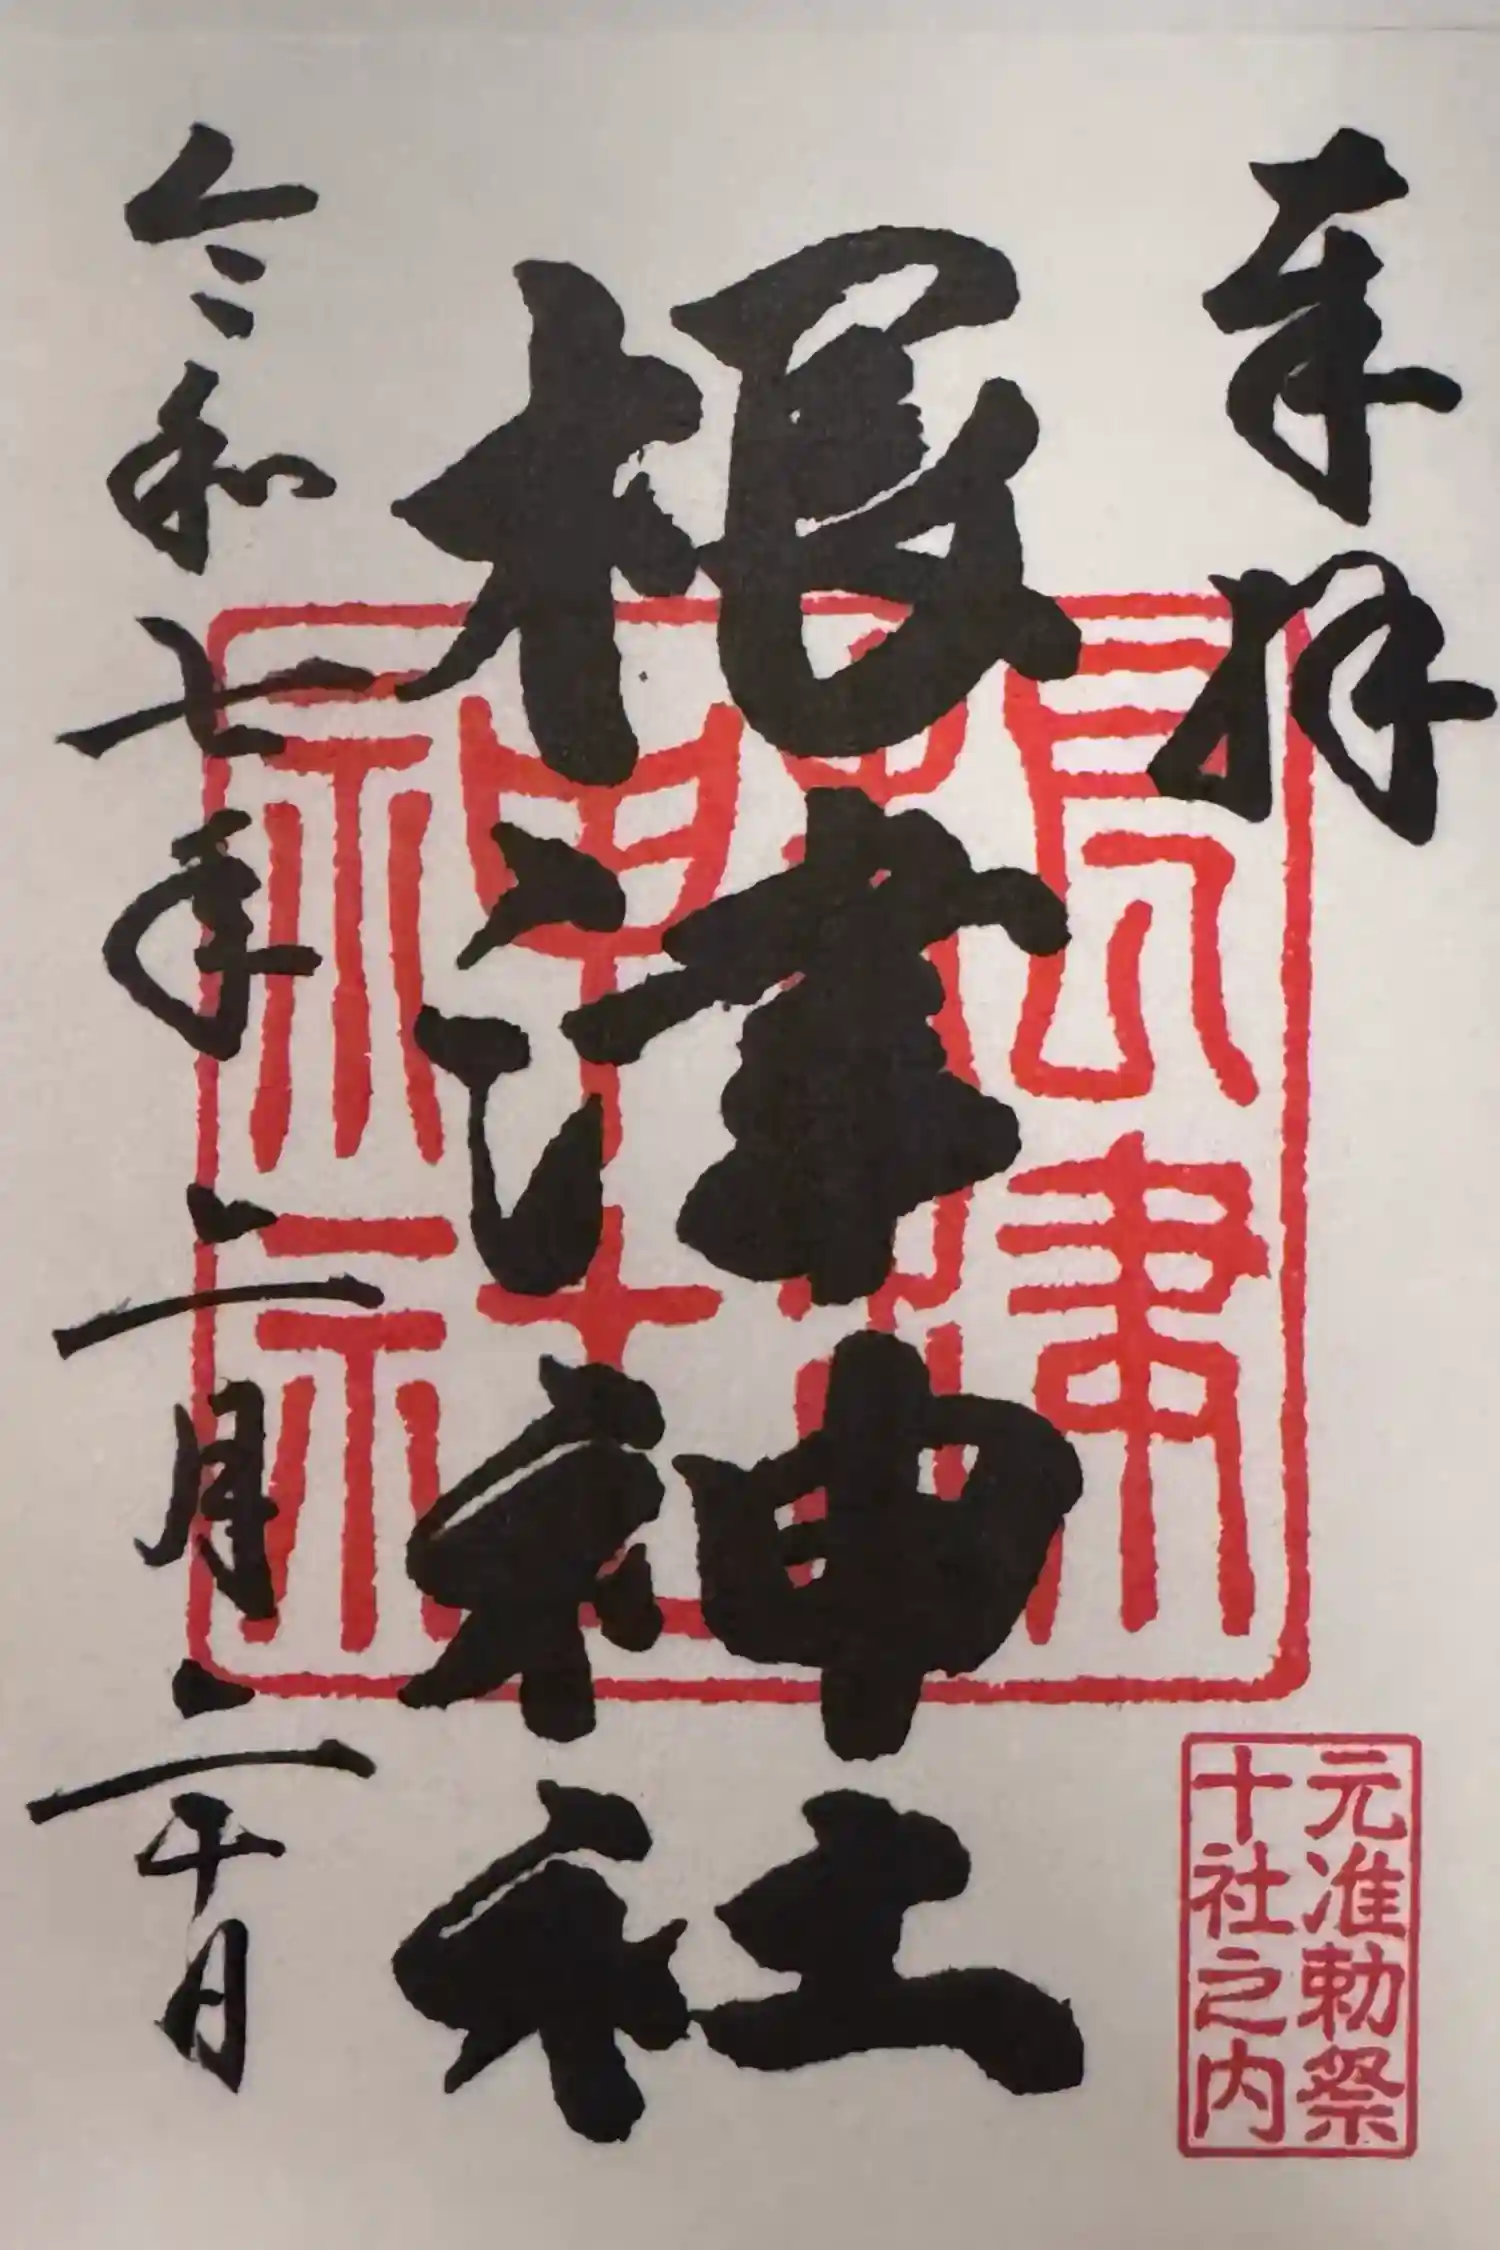 奉拝
根津神社
令和七年二月二十日
根津
神社
元准勅祭
十社之内